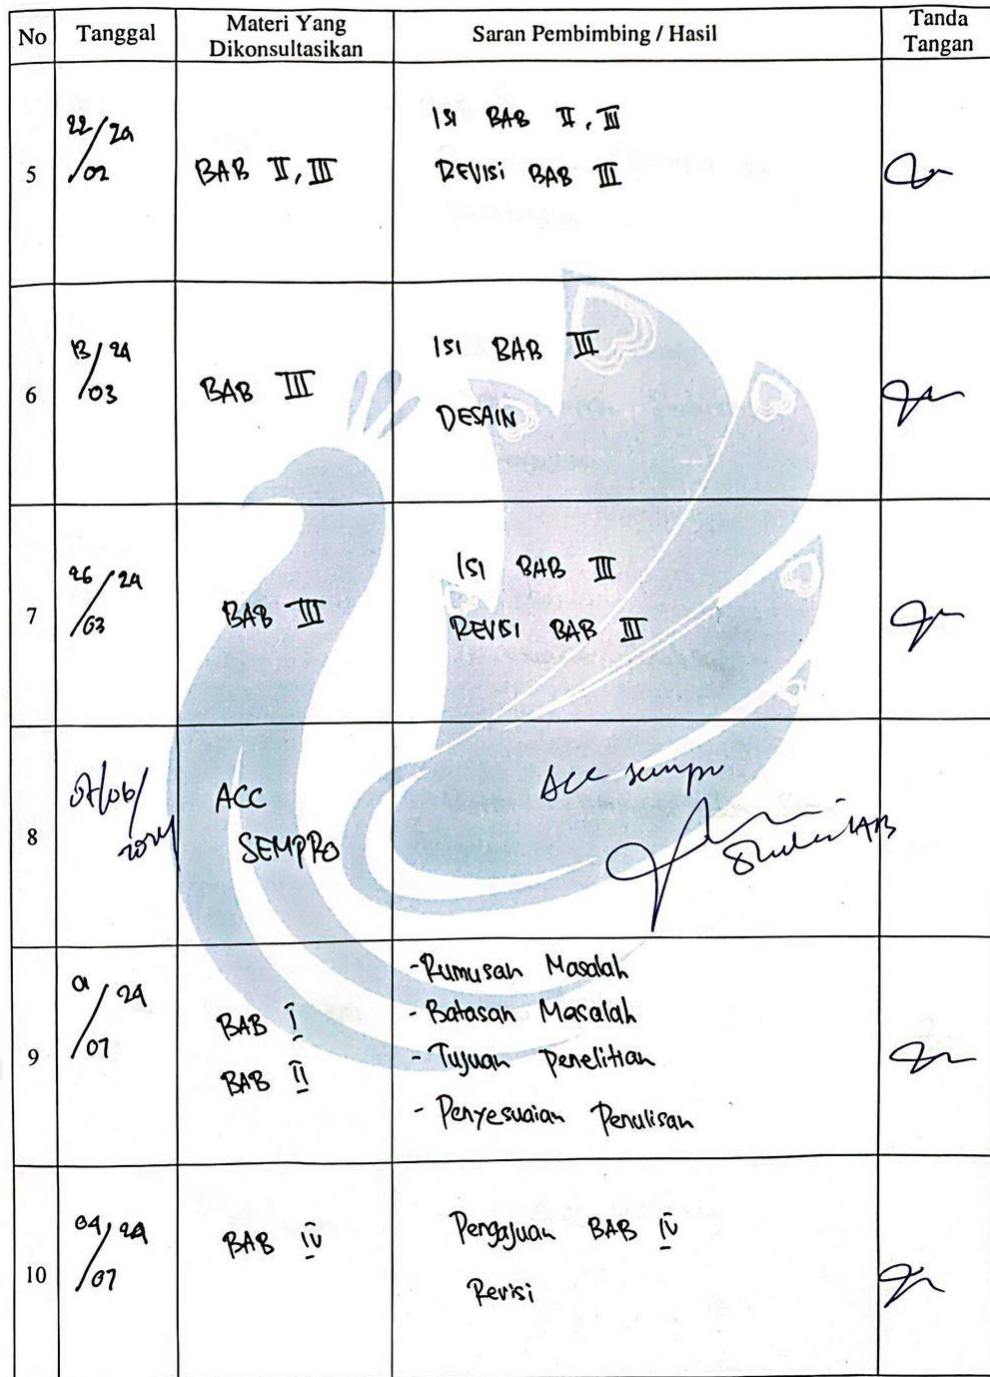 No Tanggal Materi Yang Dikonsultasikan Saran Pembimbing / Hasil Tanda Tangan
5
22/24
/02
BAB II, III
ISI BAB II, III
REVISI BAB III
6
13/24
/03
BAB III
ISI BAB III
DESAIN
7
26/24
/03
BAB III
ISI BAB III
REVISI BAB III
8
07/06/
2024
ACC
SEMPRO
Acc sempro
9
/24
/07
BAB I
BAB II
-Rumusan Masalah
- Batasan Masalah
- Tujuan Penelitian
- Penyesuaian Penulisan
10
04/24
/07
BAB IV
Pengajuan BAB IV
Revisi